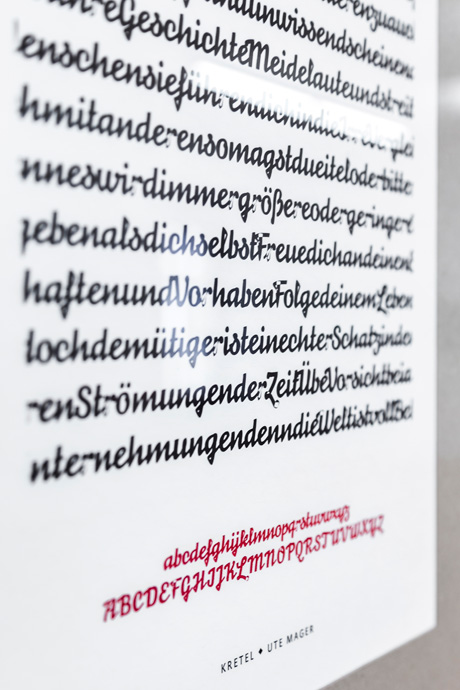 undunwissendscheinen
eGeschichteMeidelauteundstreit
enschensieführendichindieIrreverglei
hmitanderensomagstdueiteloderbitte
nneswirdimmergrößereodergeringere
jebenalsdichselbstFreuedichandeinen
haftenundVorhabenFolgedeinemLeben
lochdemütigeristeinechterSchatzinde
renStrömungenderZeitÜbeVorsichtbeia
nternehmungendenndieWeltistvollBe
abcdefghijklmnopqrstuvwxyz
ABCDEFGHIJKLMNOPQRSTUVWXYZ
KRETEL ◆ UTE MAGER